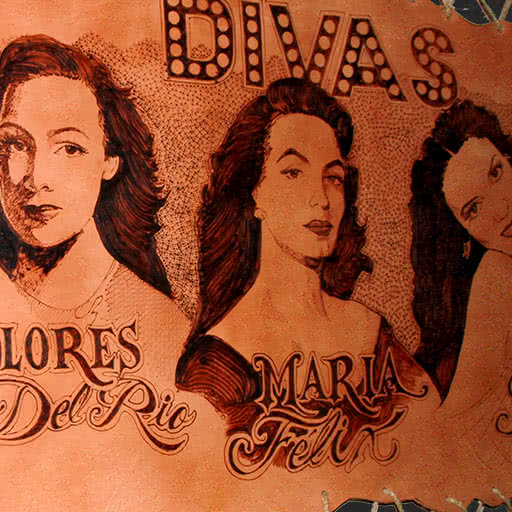 DIVAS
LORES
Del Rio
MARIA
Félix